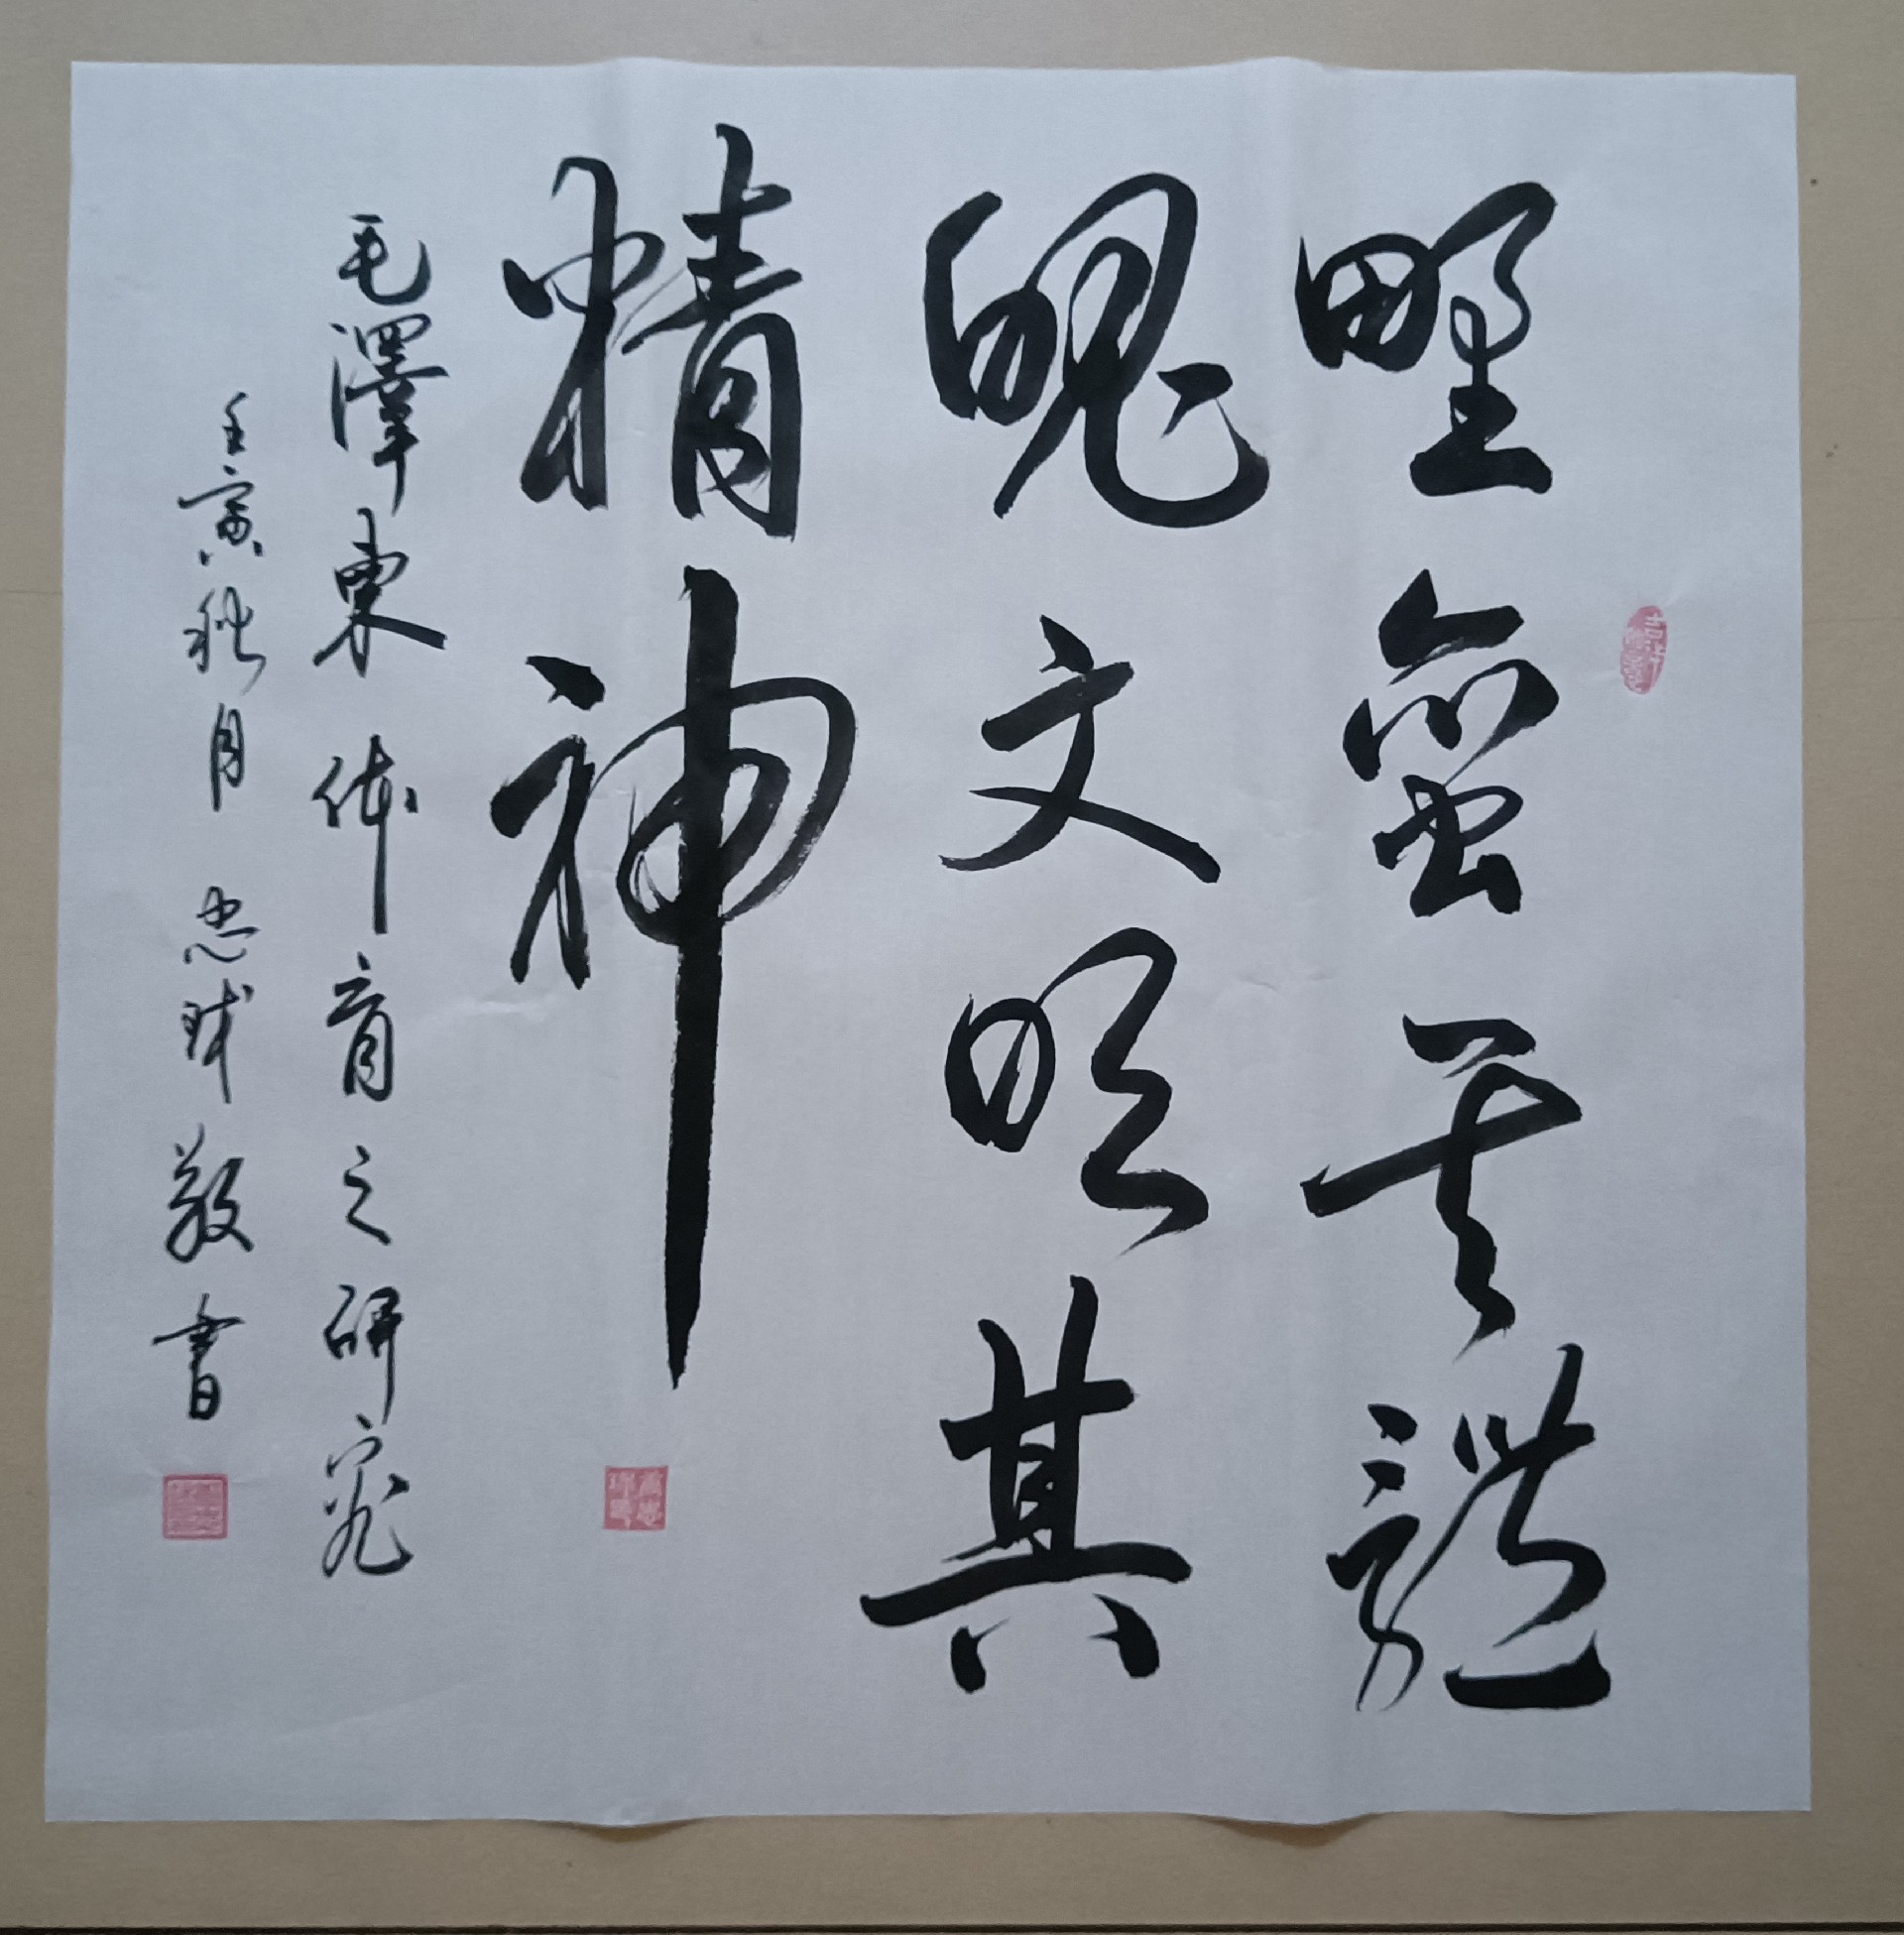 野蠻其體
魄文明其
精神
毛澤東体育之研究
壬寅秋月忠球敬書